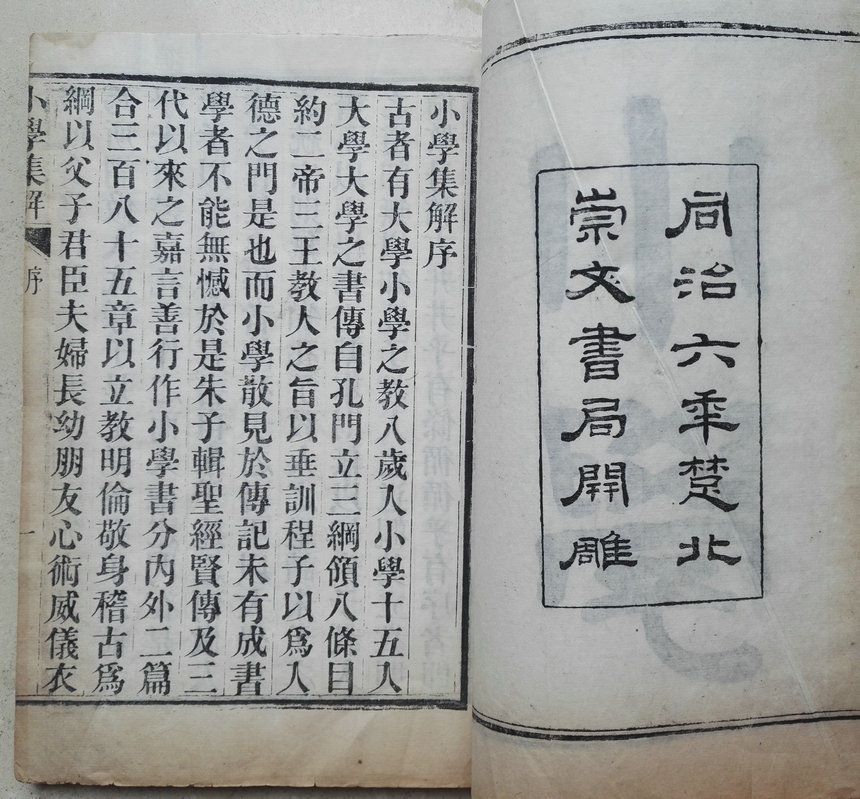 同治六年楚北
崇文書局開雕
小學集解序
古者有大學小學之教八歲入小學十五入
大學大學之書傳自孔門立三綱領八條目
約二帝三王教人之旨以垂訓程子以爲入
德之門是也而小學散見於傳記未有成書
學者不能無憾於是朱子輯聖經賢傳及三
代以來之嘉言善行作小學書分內外二篇
合三百八十五章以立教明倫敬身稽古爲
綱以父子君臣夫婦長幼朋友心術威儀衣
小學集解 序 一